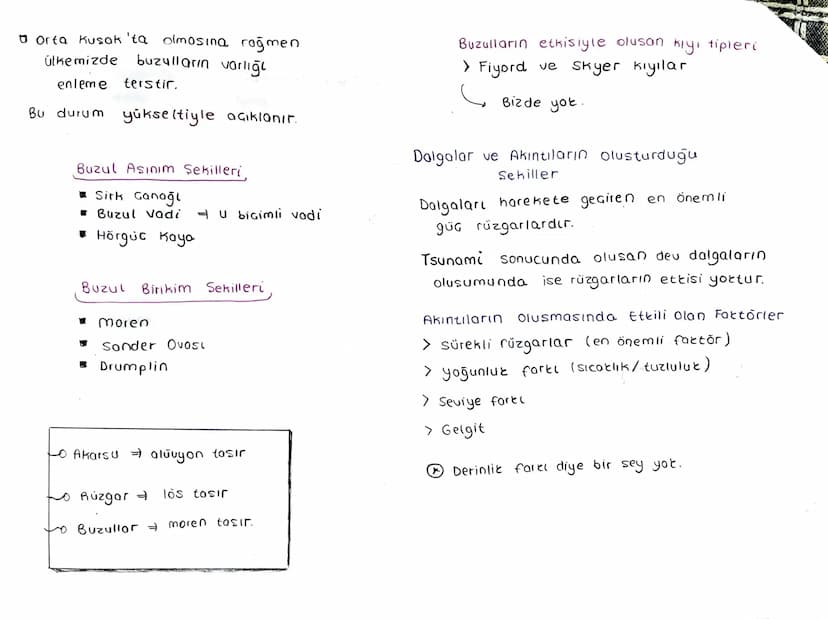 Orta Kuşak'ta olmasına rağmen
ülkemizde buzulların varlığı
enleme terstir.
Bu durum yükseltiyle açıklanır.
Buzul Aşınım Şekilleri
▪ Sirk Çanağı
▪ Buzul Vadi ⇒ U biçimli vadi
▪ Hörgüç Kaya
Buzul Birikim Şekilleri
▪ Moren
▪ Sander Ovası
▪ Drumplin
Akarsu ⇒ alüvyon taşır
Rüzgar ⇒ lös taşır
Buzullar ⇒ moren taşır.
Buzulların etkisiyle oluşan kıyı tipleri
> Fiyord ve Skyer kıyılar
Bizde yok.
Dalgalar ve Akıntıların Oluşturduğu
Şekiller
Dalgaları harekete geçiren en önemli
güç rüzgarlardır.
Tsunami sonucunda oluşan dev dalgaların
oluşumunda ise rüzgarların etkisi yoktur.
Akıntıların Oluşmasında Etkili Olan Faktörler
> Sürekli rüzgarlar (en önemli faktör)
> Yoğunluk farkı (sıcaklık/tuzluluk)
> Seviye farkı
> Gelgit
Derinlik farkı diye bir şey yok.